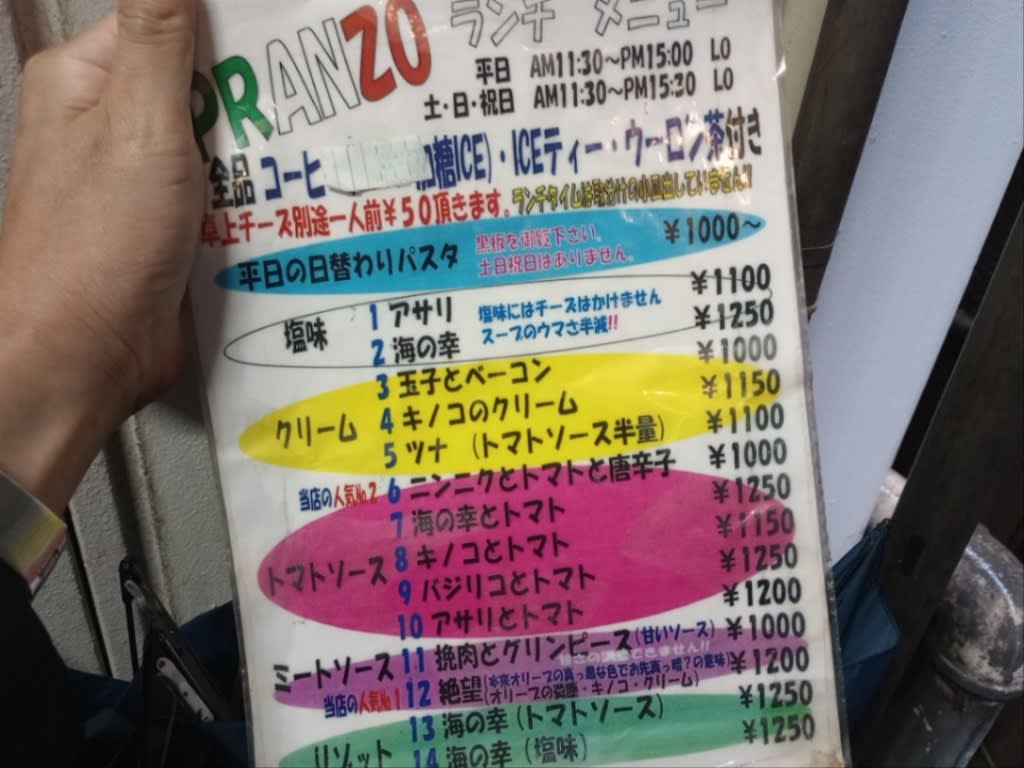 PRANZO ランチ メニュー
平日 AM11:30～PM15:00 LO
土・日・祝日 AM11:30～PM15:30 LO
全品 コーヒ 加糖ICE)・ICEティー・ウーロン茶付き
卓上チーズ別途一人前¥50頂きます。ランチタイムは取分けの小皿出していません!!
平日の日替わりパスタ 黒板を御覧下さい。 ¥1000～
土日祝日はありません。
塩味 1 アサリ 塩味にはチーズはかけません ¥1100
2 海の幸 スープのウマさ半減!! ¥1250
3 玉子とベーコン ¥1000
クリーム 4 キノコのクリーム ¥1150
5 ツナ (トマトソース半量) ¥1100
当店の人気No.2 6 ニンニクとトマトと唐辛子 ¥1000
7 海の幸とトマト ¥1250
トマトソース 8 キノコとトマト ¥1150
9 バジリコとトマト ¥1250
10 アサリとトマト ¥1200
ミートソース 11 挽肉とグリンピース(甘いソース) ¥1000
できません!!
当店の人気No.1 12 絶望(本来オリーブの真っ黒な色でお先真っ暗?の意味) ¥1200
(オリーブの菊座・キノコ・クリーム)
13 海の幸 (トマトソース) ¥1250
リゾット 14 海の幸 (塩味) ¥1250